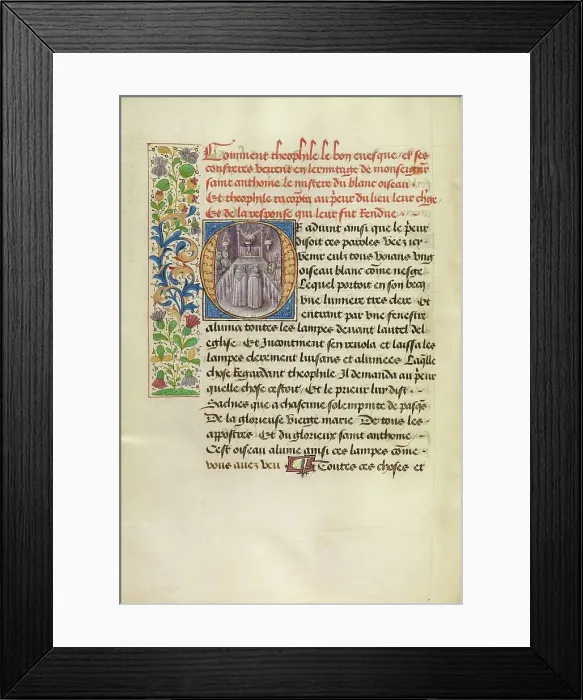 Comment theophile le bon euesque et ses
confreres veirent en lermitage de monseignr
saint anthoine le mistere du blanc oiseau
Et theophile raconpta au prieur du lieu leur chge
Et de la response qui leur fut Rendue
Et adiunt ainsi que le prieur
disoit ces paroles Veez icy
venir eulz tous voians vng
oiseau blanc cōme neige
Lequel portoit en son becq
vne lumiere tres clere Et
entrant par vne fenestre
aluma toutes les lampes deuant lautel del
eglise Et Incontinent sen reuola et laissa les
lampes clerement luisans et alumees Laq̄lle
chose Regardant theophile Il demanda au prieur
quelle chose cestoit Et le prieur luy dist
Sachies que a chascune solempnite de pasq̄s
De la glorieuse vierge marie De tous les
appostres Et du glorieux saint anthoine
Cest oiseau alume ainsi ces lampes cōme
vous auez veu Et toutes ces choses et